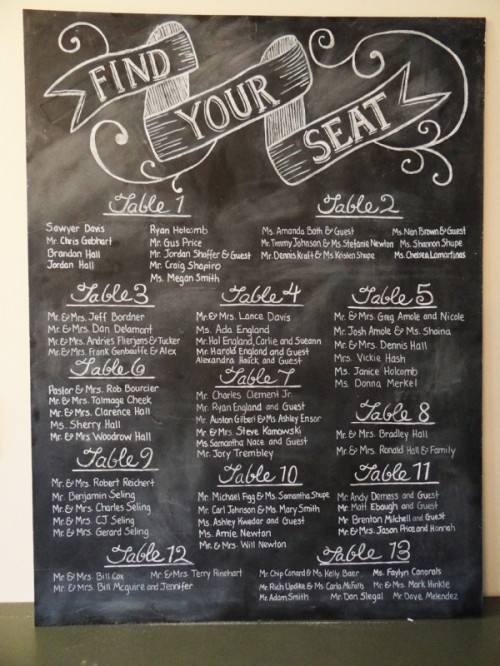 FIND
YOUR
SEAT
Table 1
Sawyer Davis
Mr. Chris Gebhart
Brandon Hall
Jordan Hall
Ryan Holcomb
Mr. Gus Price
Mr. Jordan Shaffer & Guest
Mr. Craig Shapiro
Ms. Megan Smith
Table 2
Ms. Amanda Bath & Guest
Mr. Timmy Johnson & Ms. Stefanie Newton
Mr. Dennis Kraft & Ms. Kristen Shupe
Ms. Nan Brown & Guest
Ms. Shannon Shupe
Ms. Chelsea Lamartinas
Table 3
Mr. & Mrs. Jeff Bordner
Mr. & Mrs. Dan Delamont
Mr. & Mrs. Andries Flierjans & Tucker
Mr. & Mrs. Frank & Alex
Table 4
Mr. & Mrs. Lance Davis
Ms. Ada England
Mr. Hal England, Carlie and Sueann
Mr. Harold England and Guest
Alexandra Hauck and Guest
Table 5
Mr. & Mrs. Greg Amole and Nicole
Mr. Josh Amole & Ms. Shaina
Mr. & Mrs. Dennis Hall
Mrs. Vickie Hash
Ms. Janice Holcomb
Ms. Donna Merkel
Table 6
Pastor & Mrs. Rob Bourcier
Mr. & Mrs. Talmage Cheek
Mr. & Mrs. Clarence Hall
Ms. Sherry Hall
Mr. & Mrs. Woodrow Hall
Table 7
Mr. Charles Clement Jr.
Mr. Ryan England and Guest
Mr. Auston Gilbert & Ms. Ashley Ensor
Mr. & Mrs. Steve Kamowski
Ms. Samantha Nace and Guest
Mr. Jory Trembley
Table 8
Mr. & Mrs. Bradley Hall
Mr. & Mrs. Ronald Hall & Family
Table 9
Mr. & Mrs. Robert Reichert
Mr. Benjamin Seling
Mr. & Mrs. Charles Seling
Mr. & Mrs. CJ Seling
Mr. & Mrs. Gerard Seling
Table 10
Mr. Michael Figg & Ms. Samantha Shupe
Mr. Carl Johnson & Ms. Mary Smith
Ms. Ashley Kwedar and Guest
Ms. Amie Newton
Mr. & Mrs. Will Newton
Table 11
Mr. Andy Demess and Guest
Mr. Matt Ebaugh and Guest
Mr. Brenton Mitchell and Guest
Mr. & Mrs. Jason Price and Hannah
Table 12
Mr. & Mrs. Bill Cox
Mr. & Mrs. Terry Rinehart
Mr. & Mrs. Bill Mcguire and Jennifer
Table 13
Mr. Chip Conard & Ms. Kelly Baer
Ms. Faylyn Canorals
Mr. Rich Updike & Ms. Carla McFalls
Mr. & Mrs. Mark Hinkle
Mr. Adam Smith
Mr. Dan Slegal
Mr. Dave Melendez